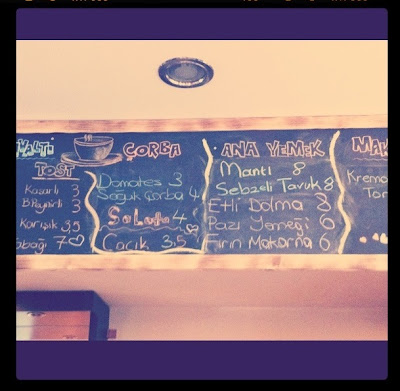 TOST
Kaşarlı 3
B.Peynirli 3
Karışık 3,5
7
ÇORBA
Domates 3
Soğuk Çorba 4
Salata 4
Cacık 3,5
ANA YEMEK
Mantı 8
Sebzeli Tavuk 8
Etli Dolma 8
Pazı Yemeği 6
Fırın Makarna 6
MAK
Kremo
Tor